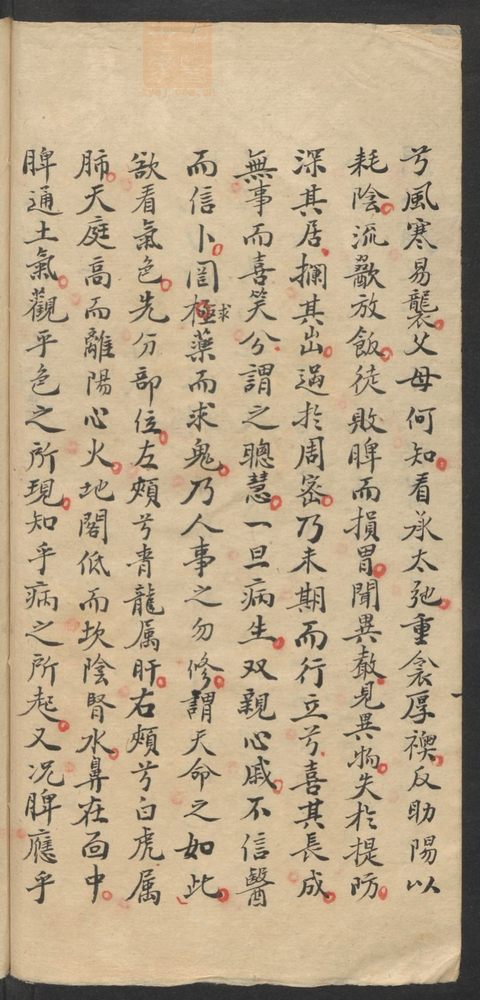 兮風寒易襲父母何知看承太弛重衾厚襖反助陽以
耗陰流歠放飯徒敗脾而損胃聞異聲見異物失於提防
深其居攔其出過於周密乃未期而行立兮喜其長成
無事而喜笑兮謂之聰慧一旦病生双親心戚不信醫
而信卜罔極藥而求鬼乃人事之勿修謂天命之如此
求
欲看氣色先分部位左頰兮青龍属肝右頰兮白虎属
肺天庭高而離陽心火地閣低而坎陰腎水鼻在面中
脾通土氣觀乎色之所現知乎病之所起又况脾應乎